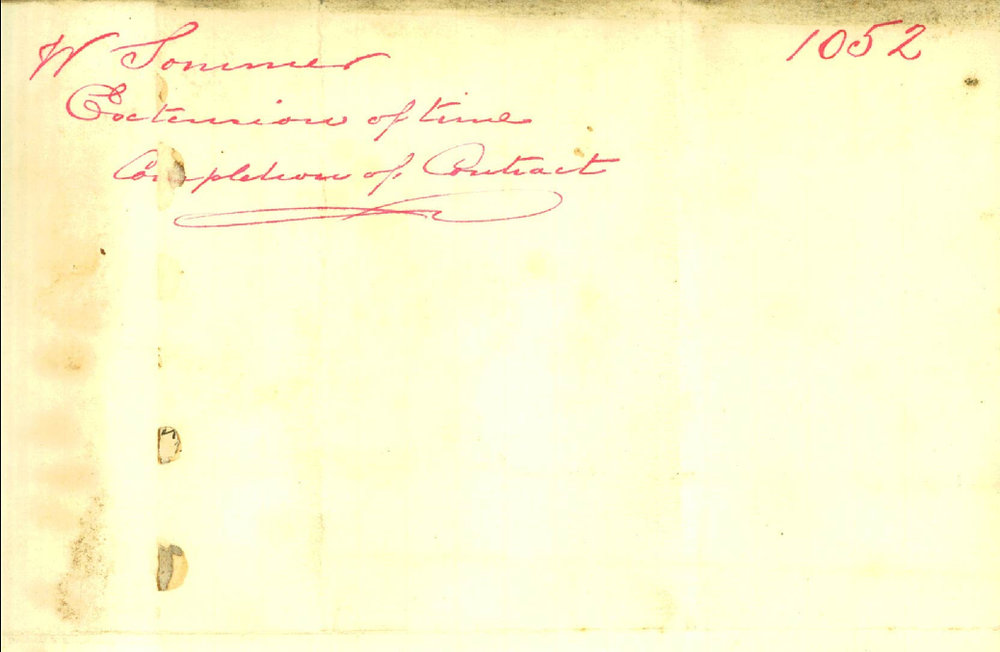 W Sommer
1052
Extension of time
Completion of Contract